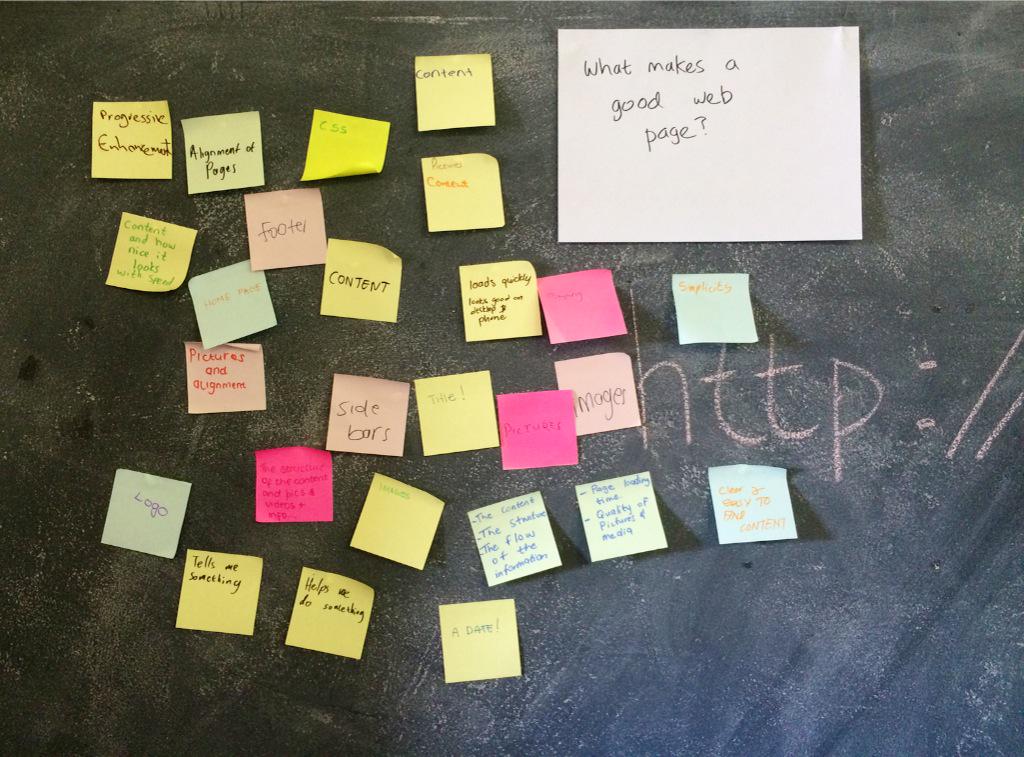 What makes a
good web
page?
Content
Progressive
Enhancement
Alignment of
Pages
CSS
Pictures
Content
Content
and how
nice it
looks
with speed
footer
HOME PAGE
CONTENT
loads quickly
looks good on
desktop &
phone
Simplicity
Pictures
and
alignment
Side
bars
Title!
PICTURES
Images
http://
LOGO
The structure
of the content
and pics &
videos +
info...
IMAGES
-The content
-The structure
-The flow
of the
information
- Page loading
time.
- Quality of
Pictures &
media
Clear &
easy TO
FIND
CONTENT
Tells me
something
Helps me
do something
A DATE!